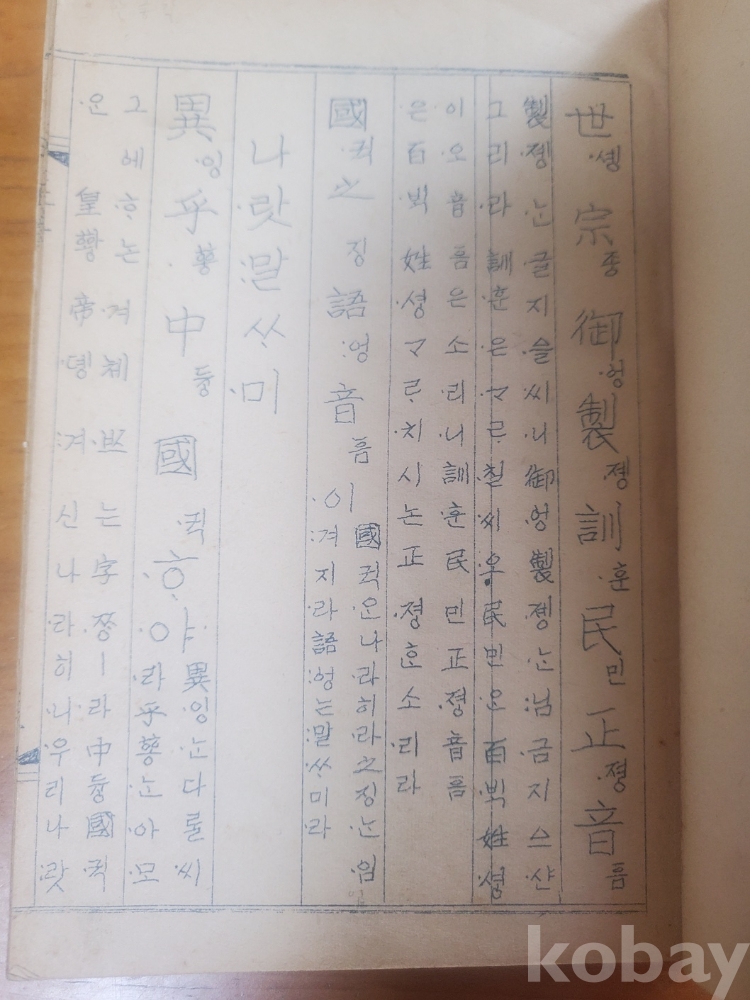 世·솅宗종御·엉製·졩訓·훈民민正·졍音ᅙᅳᆷ
製·졩ᄂᆞᆫ글지ᅀᅳᆯ씨니御·엉製·졩ᄂᆞᆫ:님금지ᅀᅳ샨
그리라訓·훈은ᄀᆞᄅᆞ칠씨오民민ᄋᆞᆫ百·ᄇᆡᆨ姓·셩
이오音ᅙᅳᆷ은소리니訓·훈民민正·졍音ᅙᅳᆷ
은百·ᄇᆡᆨ姓·셩ᄀᆞᄅᆞ치시논正·졍ᄒᆞᆫ소리라
國·귁之징語:엉音ᅙᅳᆷ·이
國·귁ᄋᆞᆫ나라히라之징ᄂᆞᆫ·입
·겨지라語:엉는:말ᄊᆞ미라
나·랏:말ᄊᆞ·미
異·잉乎ᅘᅩᆼ中듕國·귁·ᄒᆞ·야
異·잉ᄂᆞᆫ다ᄅᆞᆯ·씨
·라乎ᅘᅩᆼᄂᆞᆫ·아·모
그에ᄒᆞ논겨체·ᄡᅳ는字·ᄍᆞᆼㅣ라中듕國·귁
·ᄋᆞᆫ皇ᅘᅪᆼ帝·뎽:겨신나·라히·니·우리나·랏
kobay